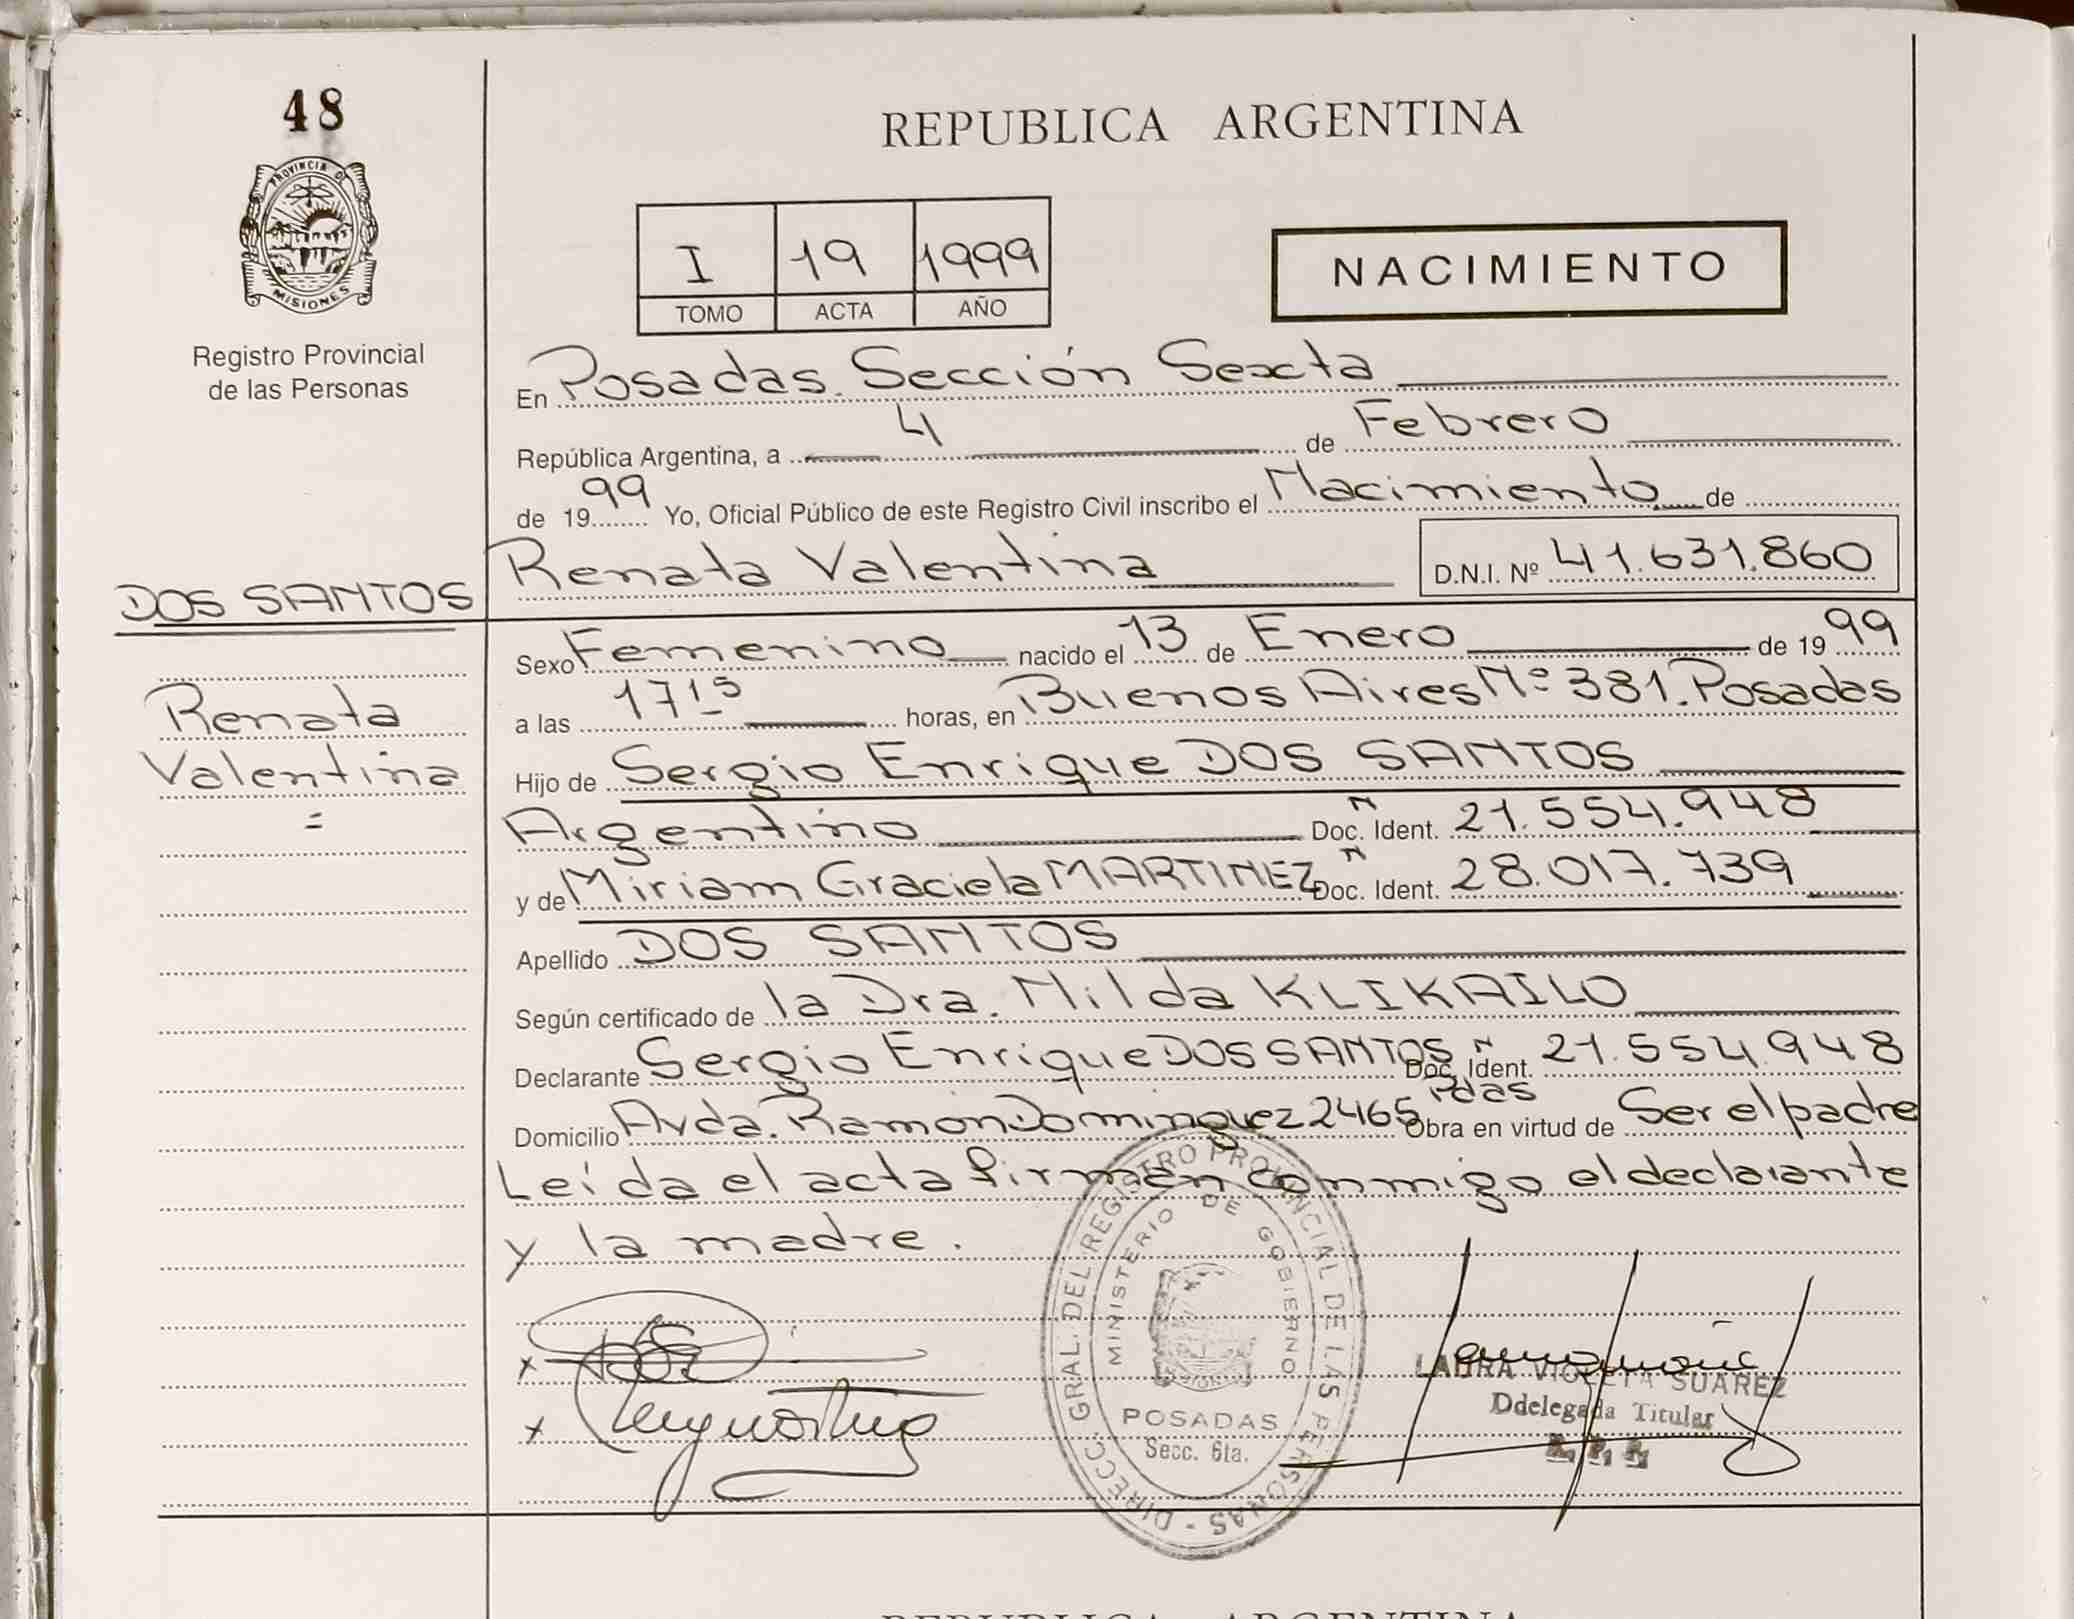 48
PROVINCIA DE
MISIONES
Registro Provincial
de las Personas
REPUBLICA ARGENTINA
I 19 1999
TOMO ACTA AÑO
NACIMIENTO
En Posadas. Sección Sexta
República Argentina, a 4 de Febrero
de 1999 Yo, Oficial Público de este Registro Civil inscribo el Nacimiento de
Renata Valentina D.N.I. Nº 41.631.860
DOS SANTOS
Renata
Valentina
=
Sexo Femenino nacido el 13 de Enero de 1999
a las 17 15 horas, en Buenos Aires Nº 381. Posadas
Hijo de Sergio Enrique DOS SANTOS
Argentino Doc. Ident. N 21.554.948
y de Miriam Graciela MARTINEZ Doc. Ident. N 28.017.739
Apellido DOS SANTOS
Según certificado de la Dra. Nilda KLIKAILO
Declarante Sergio Enrique DOS SANTOS Doc. Ident. N 21.554.948
Domicilio Avda. Ramón Dominguez 2465 Pdas Obra en virtud de Ser el padre
Leída el acta firman conmigo el declarante
y la madre.
x
x
DIRECC. GRAL. DEL REGISTRO PROVINCIAL DE LAS PERSONAS -
MINISTERIO DE GOBIERNO
POSADAS
Secc. 6ta.
LAURA VIOLETA SUAREZ
Ddelegada Titular
R. P. P.
REPUBLICA ARGENTINA